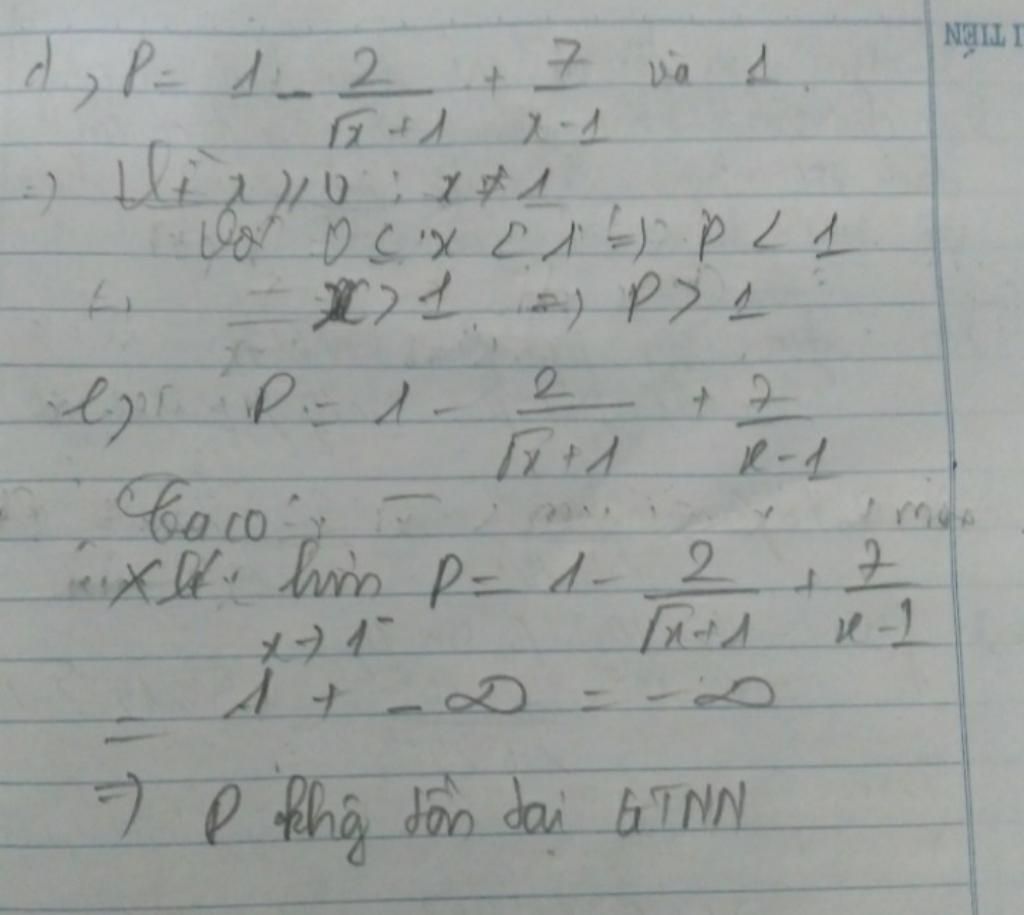 d, P = 1 - 2/(√x + 1) + 7/(x - 1) và 1.
=> Vì x ≥ 0 ; x ≠ 1
Với 0 ≤ x < 1 => P < 1
x > 1 => P > 1
e, P = 1 - 2/(√x + 1) + 7/(x - 1)
Ta có
Xét lim P = 1 - 2/(√x + 1) + 7/(x - 1)
x → 1⁻
= 1 + - ∞ = - ∞
=> P khg tồn tại GTNN